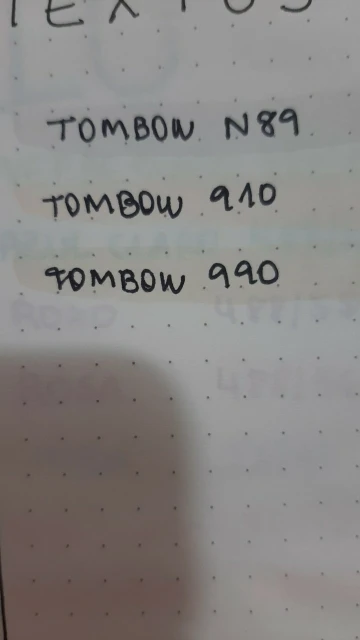 TEXTOS
TOMBOW N89
TOMBOW 910
TOMBOW 990